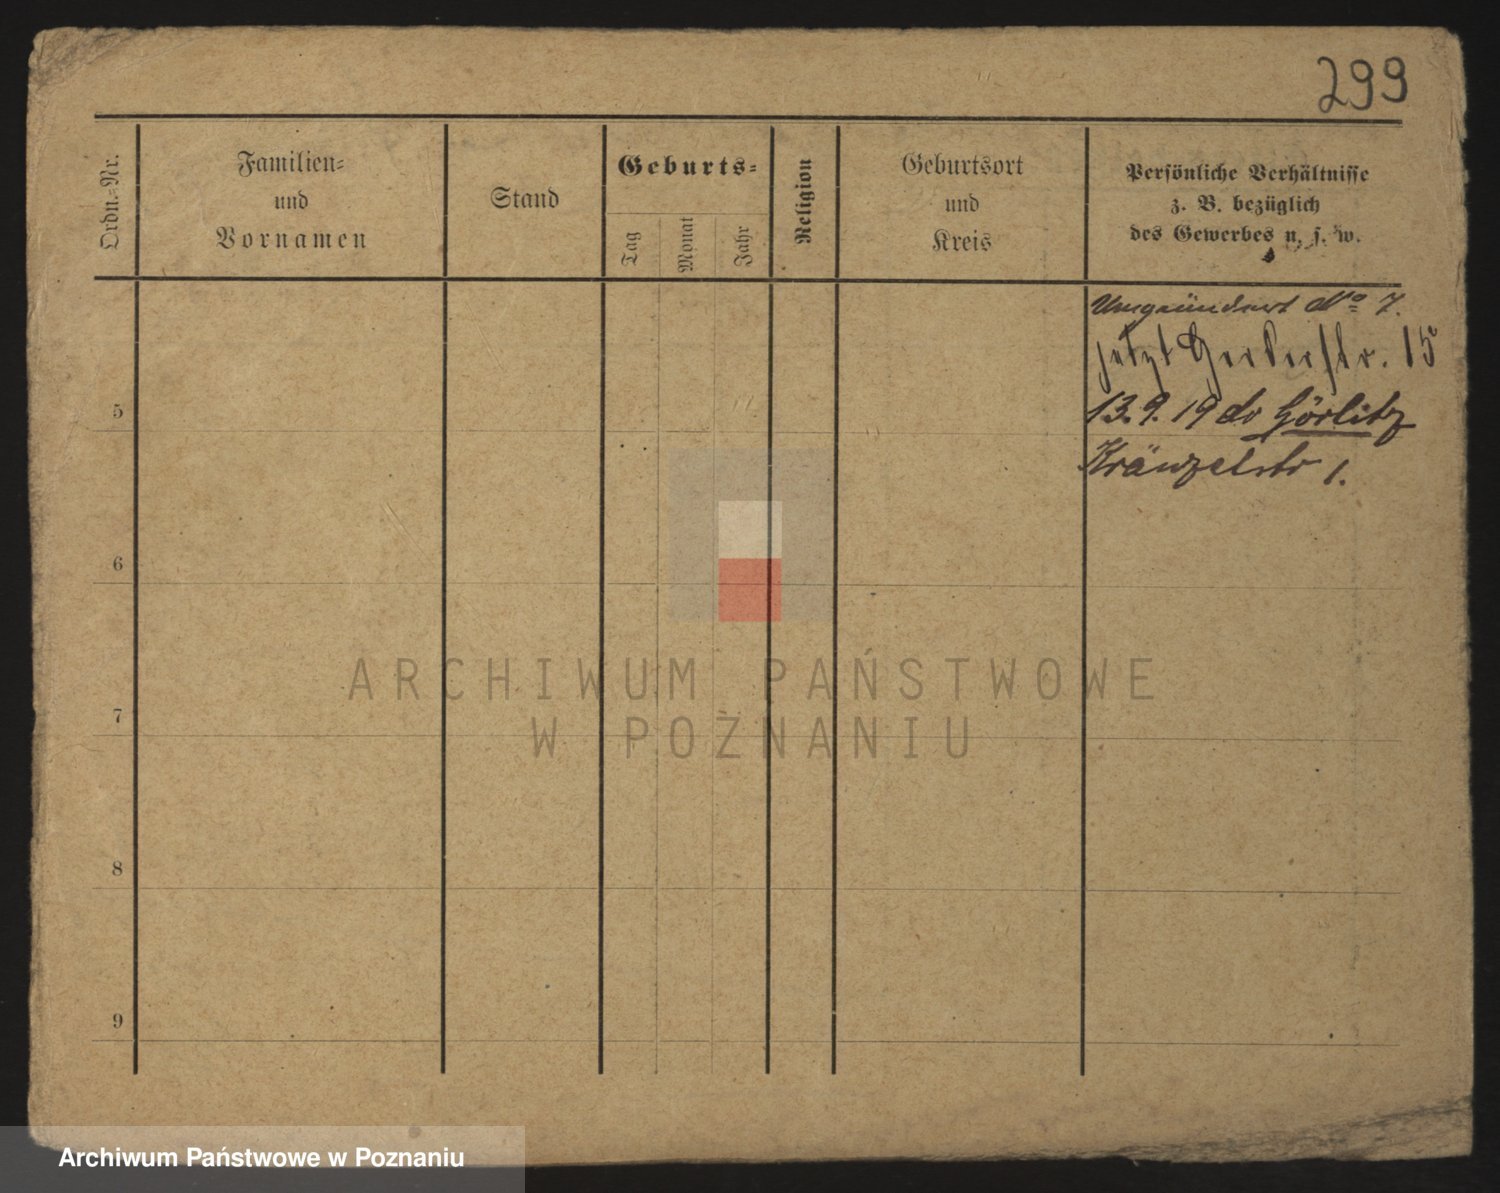 299
Ordn.-Nr.
Familien-
und
Vornamen
Stand
Geburts-
Tag
Monat
Jahr
Religion
Geburtsort
und
Kreis
Persönliche Verhältnisse
z. B. bezüglich
des Gewerbes u. s. w.
No 7.
jetzt Gerberstr. 15
13.9.19 Görlitz
Kränzelstr 1.
5
6
7
8
9
ARCHIWUM PAŃSTWOWE
W POZNANIU
Archiwum Państwowe w Poznaniu